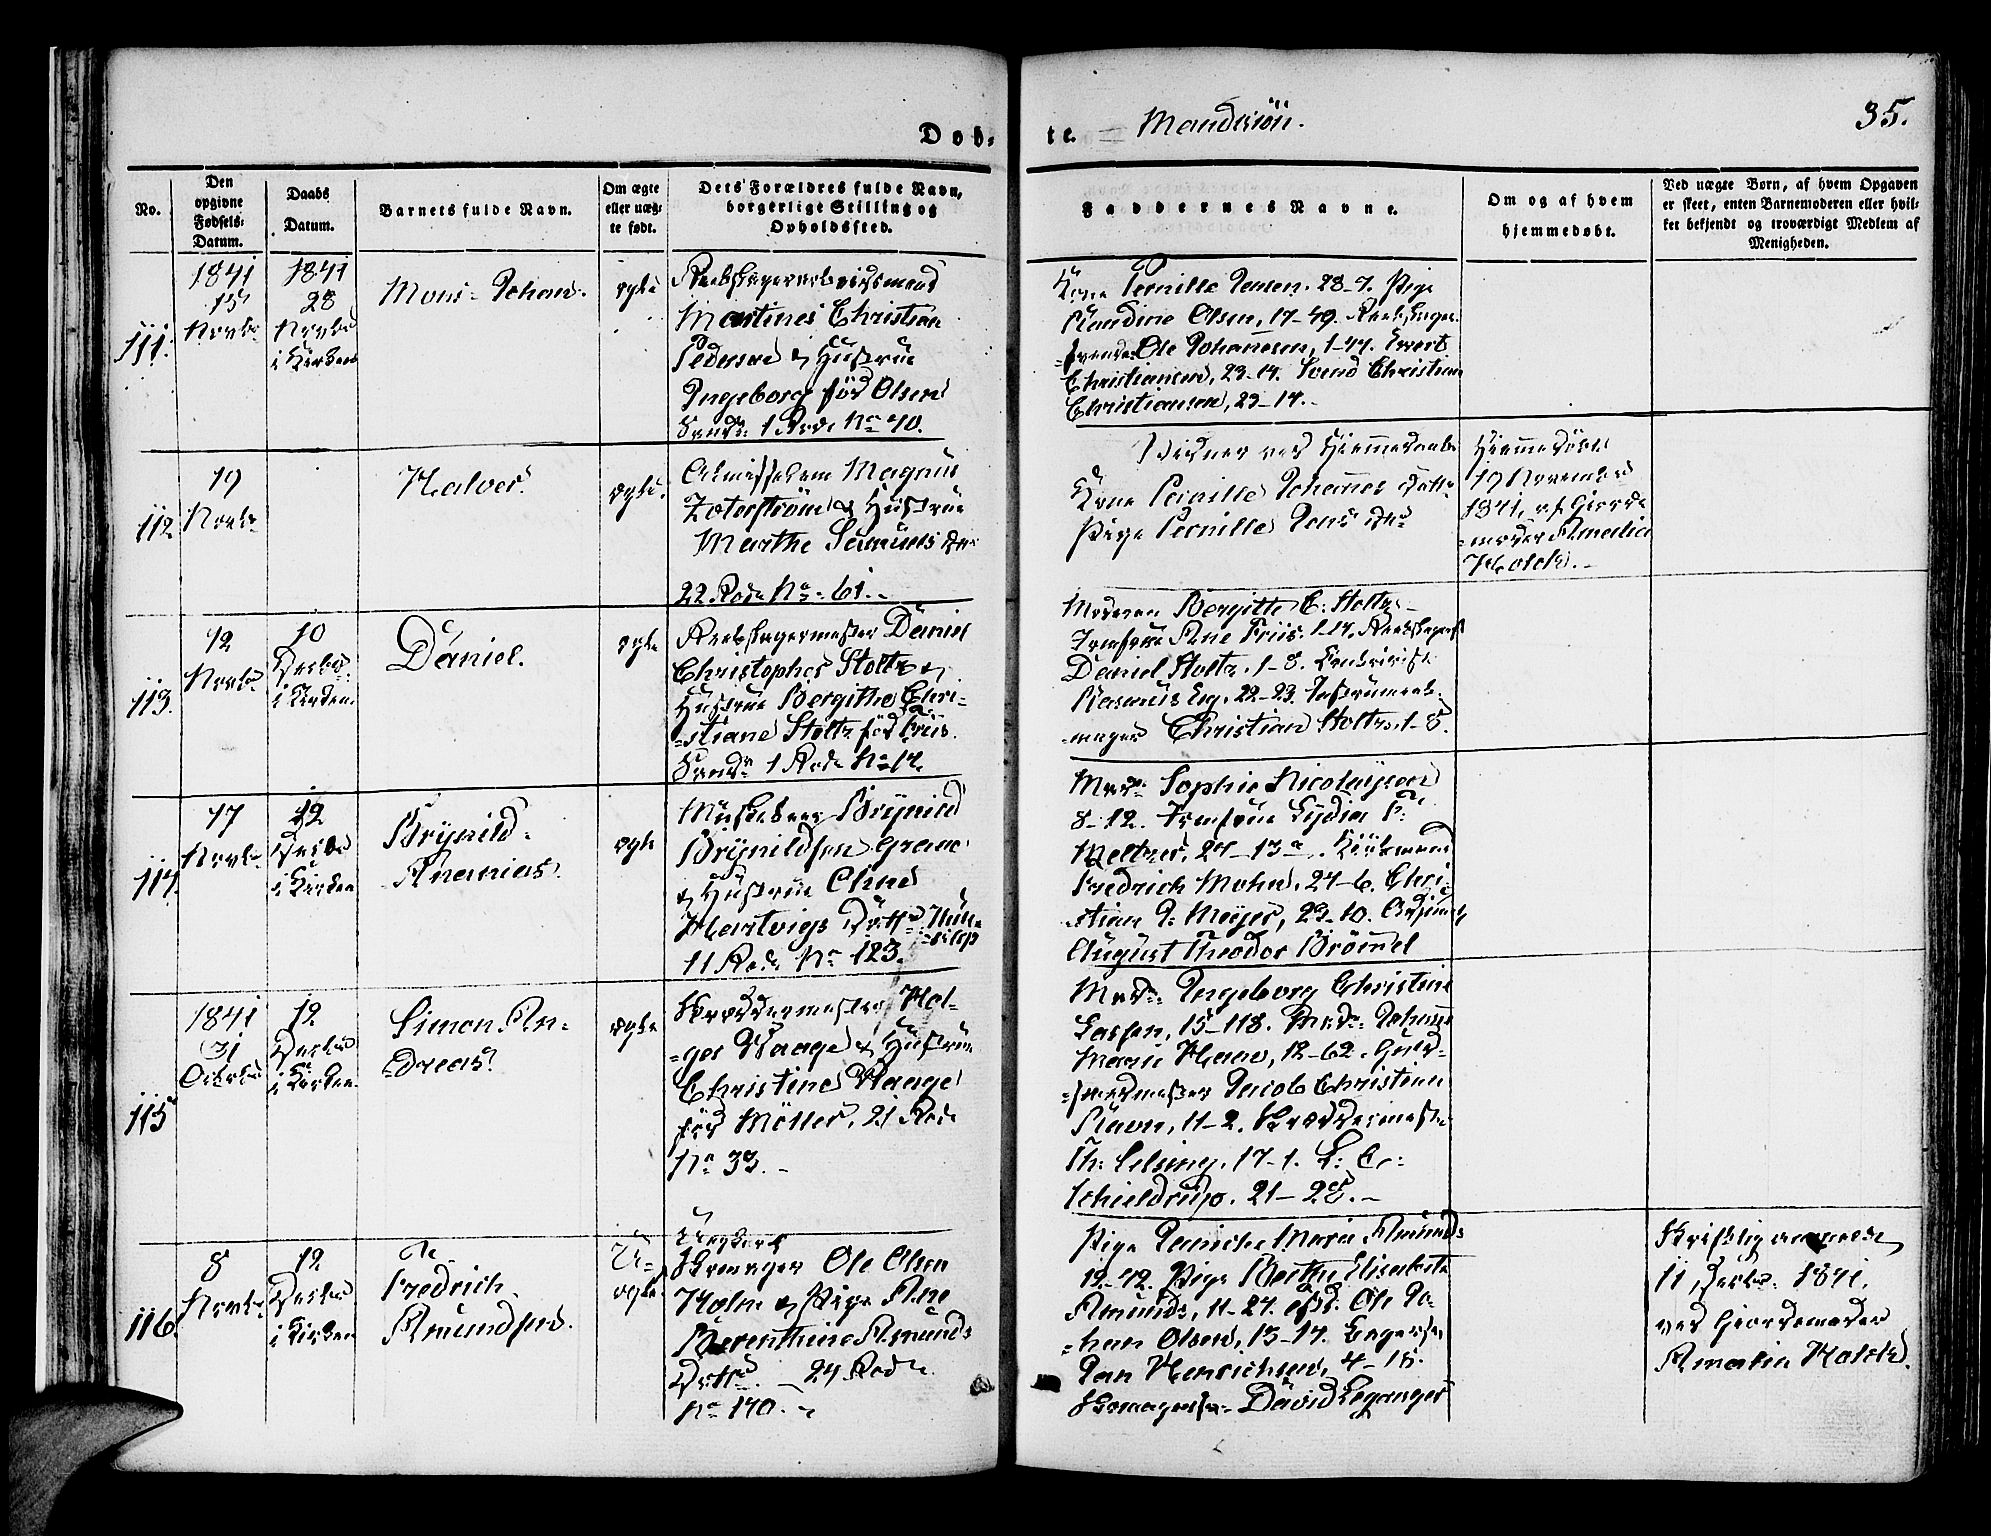 Døb-
te. Mandkiön.
35.
No.
Den
opgivne
Fødsels-
Datum.
Daabs
Datum.
Barnets fulde Navn.
Om ægte
eller uæg-
te født.
Dets Forældres fulde Navn,
borgerlige Stilling og
Opholdssted.
Faddernes Navne.
Om og af hvem
hjemmedøbt.
Ved uægte Børn, af hvem Opgaven
er skeet, enten Barnemoderen eller hvil-
ket bekjendt og troværdigt Medlem af
Menigheden.
111.
1841
15
Novbr
1841
28
Novbr
i Kirken
Mons Johan.
ægte
Martines Christian
Pedersen & Hustrue
Ingeborg föd Olsen
1 Rode No 40.
Kone Pernille Jensen. 28-7. Pige
Olsen, 17-49.
Ole Johannesen, 1-44.
Christiansen, 23-14. Svend Christian
Christiansen, 23-14.
112
19
Novbr
Halver.
ægte.
Magnus
Zoterström & Hustrue
Marthe Samuels Dr
22 Rode No 61.
Vidner ved Hjemmedaaben
Kone Pernille Johannes Datter
Pige Pernille Jens Dr
Hjemmedøbt
19 November
1841, af Gjorde-
moder Amalia
Holck.
113.
12
Novbr
10
Decbr
i Kirken.
Daniel.
ægte
Reebslagermester Daniel
Christopher Stoltz &
Hustrue Bergithe Chri-
stiane Stoltz föd Friis.
1 Rode No 12.
Moderen Bergitte C. Stoltz
Jomfrue Ane Friis. 1-14. Reebslager
Daniel Stoltz, 1-8.
Rasmus Eeg, 22-23. Instrument-
mager Christian Stoltz, 1-8.
114.
17
Novbr
12
Decbr
i Kirken
Brynild
Ananias.
ægte
Brynild
Brynildsen Grane
& Hustrue Oline
Hartvigs Dotter
11 Rode No 123.
Mad: Sophie Nicolaysen
8-12. Jomfrue Lydia F.
Meltzer, 24-13a. Kiöbmand
Fredrich Mohn, 24-6. Chri-
stian J: Meyer, 23-10.
August Theodor Brömel
115
1841
31
Octobr
12
Decbr
i Kirken
Simon An-
dreas.
ægte
Skreddermester Hol-
ger Waage & Hustrue
Christine Waage
föd Möller, 21 Rode
No 33.
Mad: Ingeborg Christine
Lassen, 15-118. Mad: Johanne
Marie Haan, 12-62. Guld-
smedmester Jacob Christian
Ravn, 11-2. Skreddermester
Th: Selsing, 17-1.
Schieldrup. 21-28.
116.
8
Novbr
12
Decbr
i Kirken
Fredrich
Amundsen.
U-
ægte
Skomager Ole Olsen
Holm & Pige Ane
Berenthine Amunds
Dotter. 24 Rode
No 140.
Pige Maria Amunds
12-42. Pige Berthe Elisabeth
Amunds, 11-27. Ole Jo-
han Olsen, 13-14.
Jan Henrichsen, 4-15.
David Leganger
Skriftlig anmeldt
11 Decbr 1841.
ved Gjordemoder
Amalia Holck.